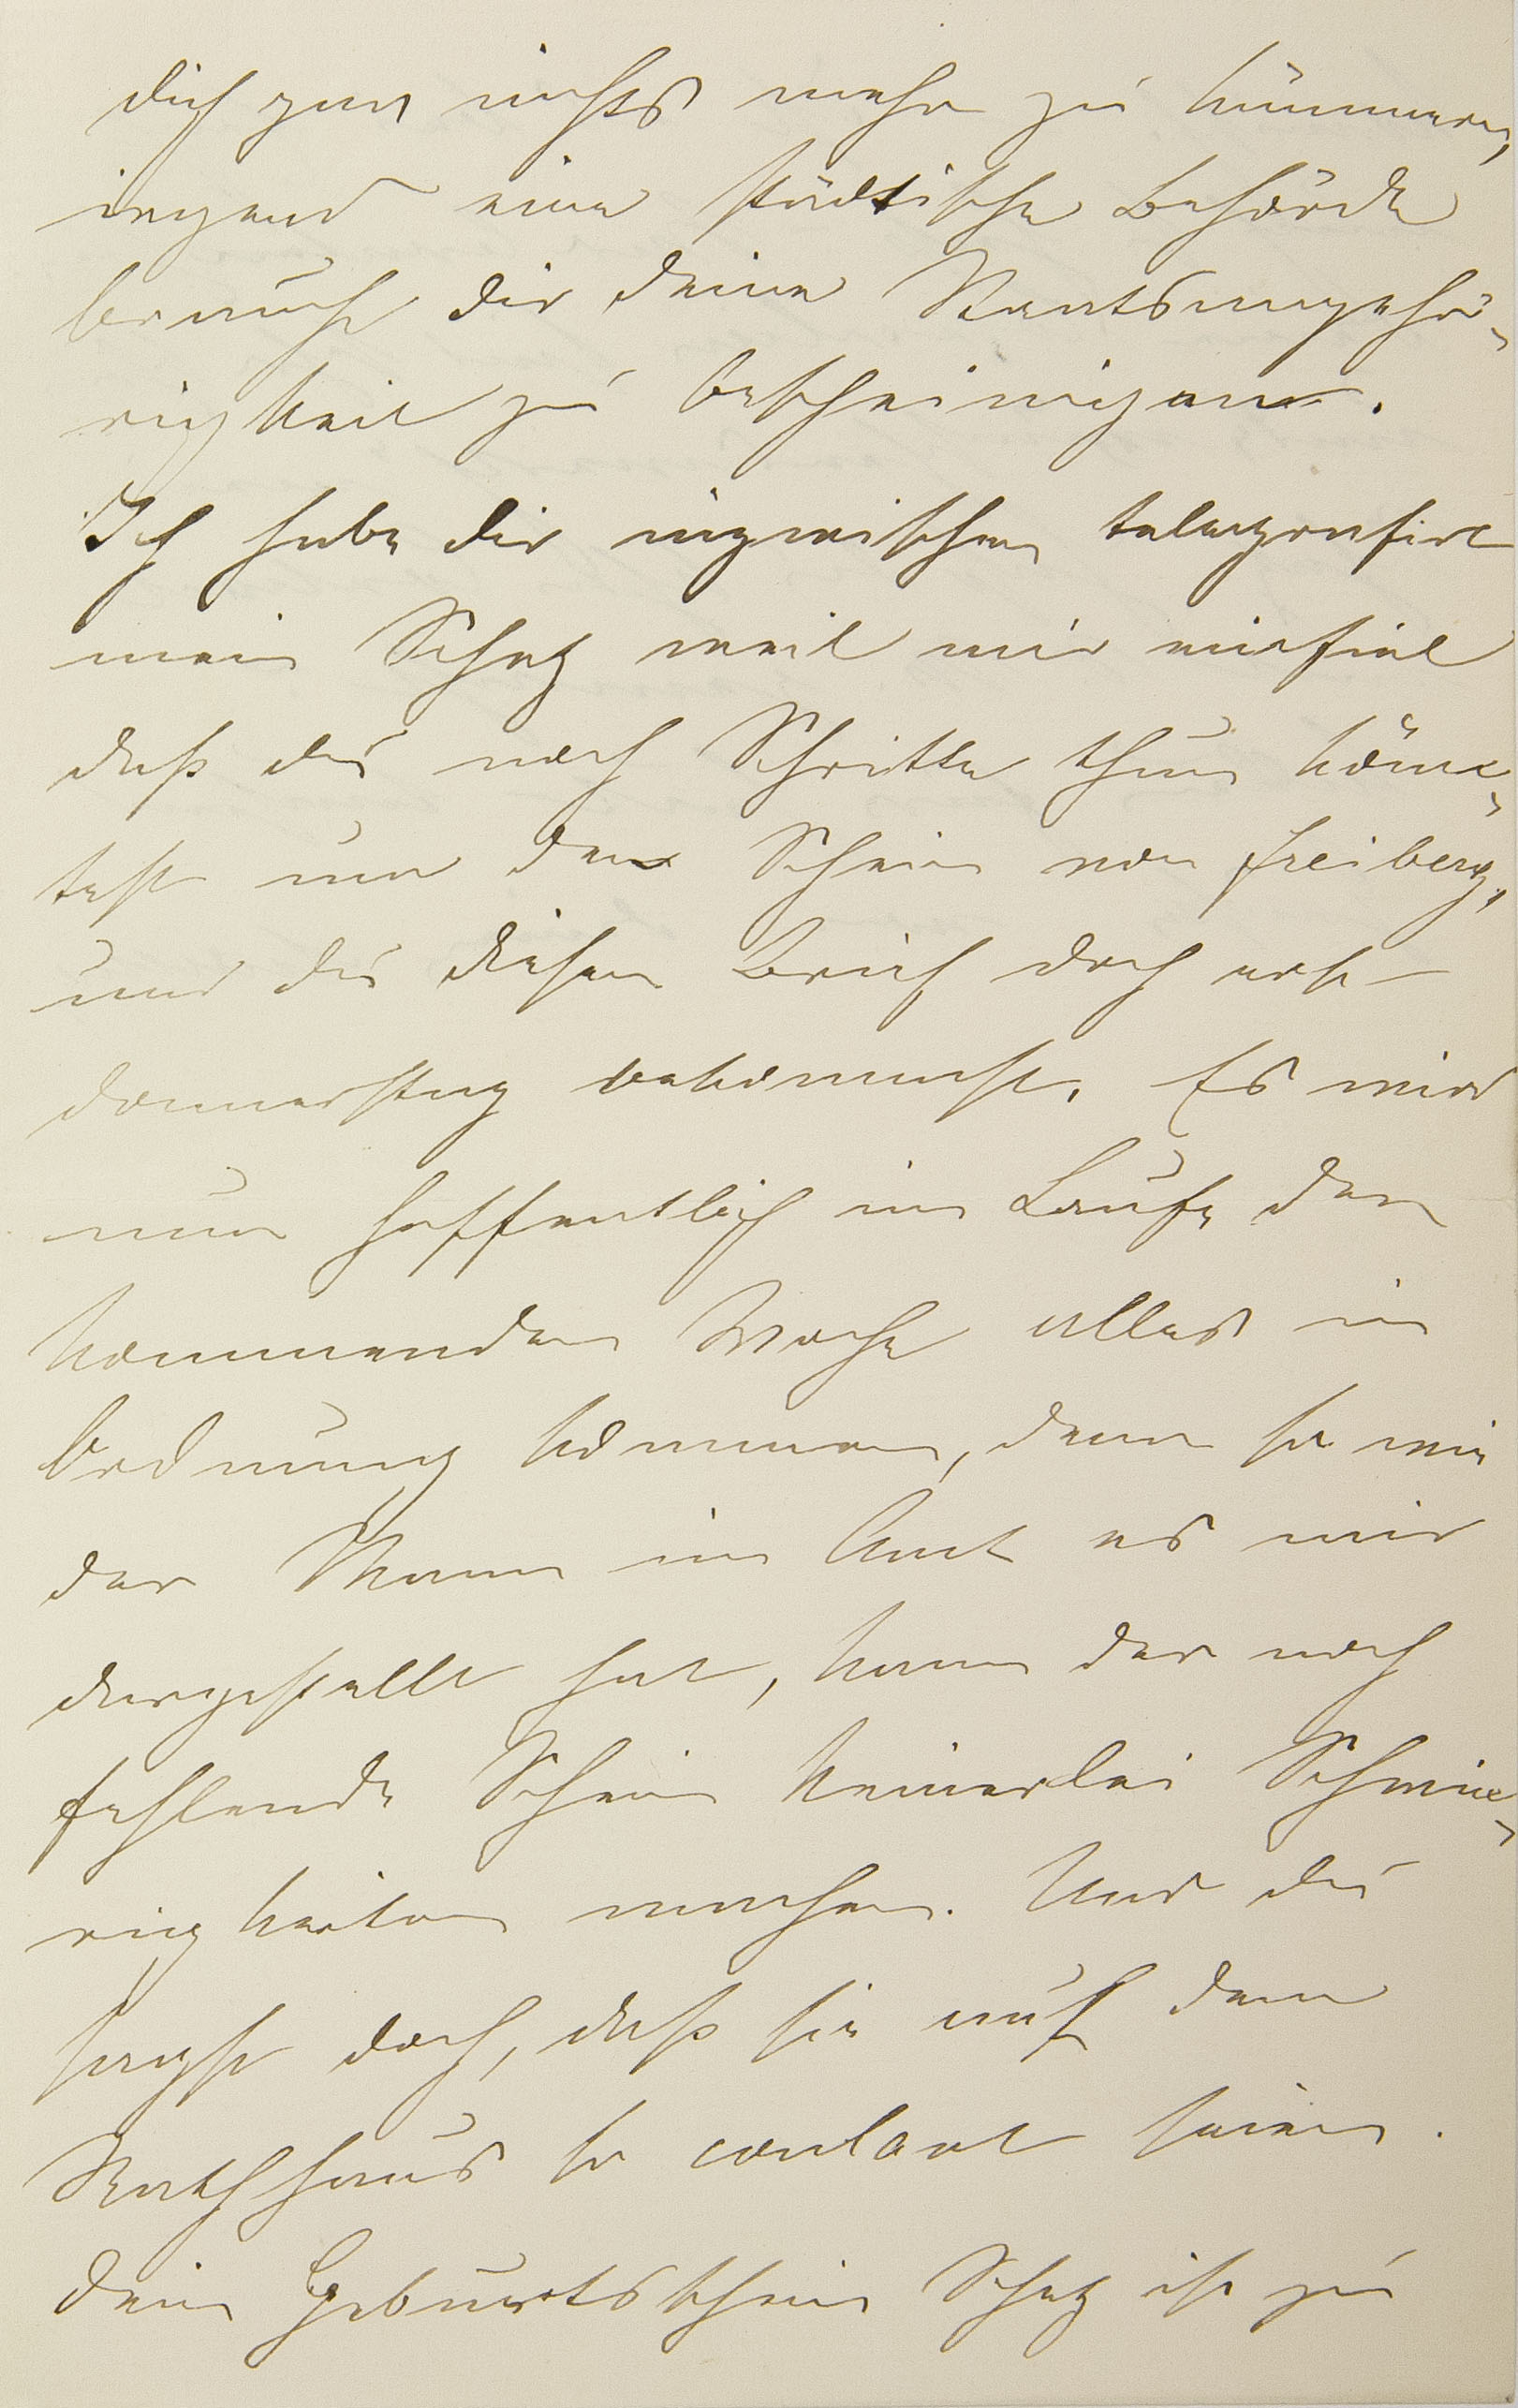 dich gar nichts mehr zu kümmern,
irgend eine städtische Behörde
braucht dir deine Staatsangehö-
rigkeit zu bescheinigen.
Ich habe dir inzwischen telegrafirt
mein Schatz weil mir einfiel
daß du noch Schritte thun könn-
test um den Schein von Freiberg,
und du diesen Brief doch erst
Donnerstag bekommst. Es wird
nun hoffentlich im Laufe der
kommenden Woche alles in
Ordnung kommen, denn so wie
der Mann im Amt es mir
dargestellt hat, kann der noch
fehlende Schein keinerlei Schwie-
rigkeiten machen. Und du
sagst doch, daß sie auf dem
Rathhaus so coulant seien.
Dein Geburtsschein Schatz ist zu